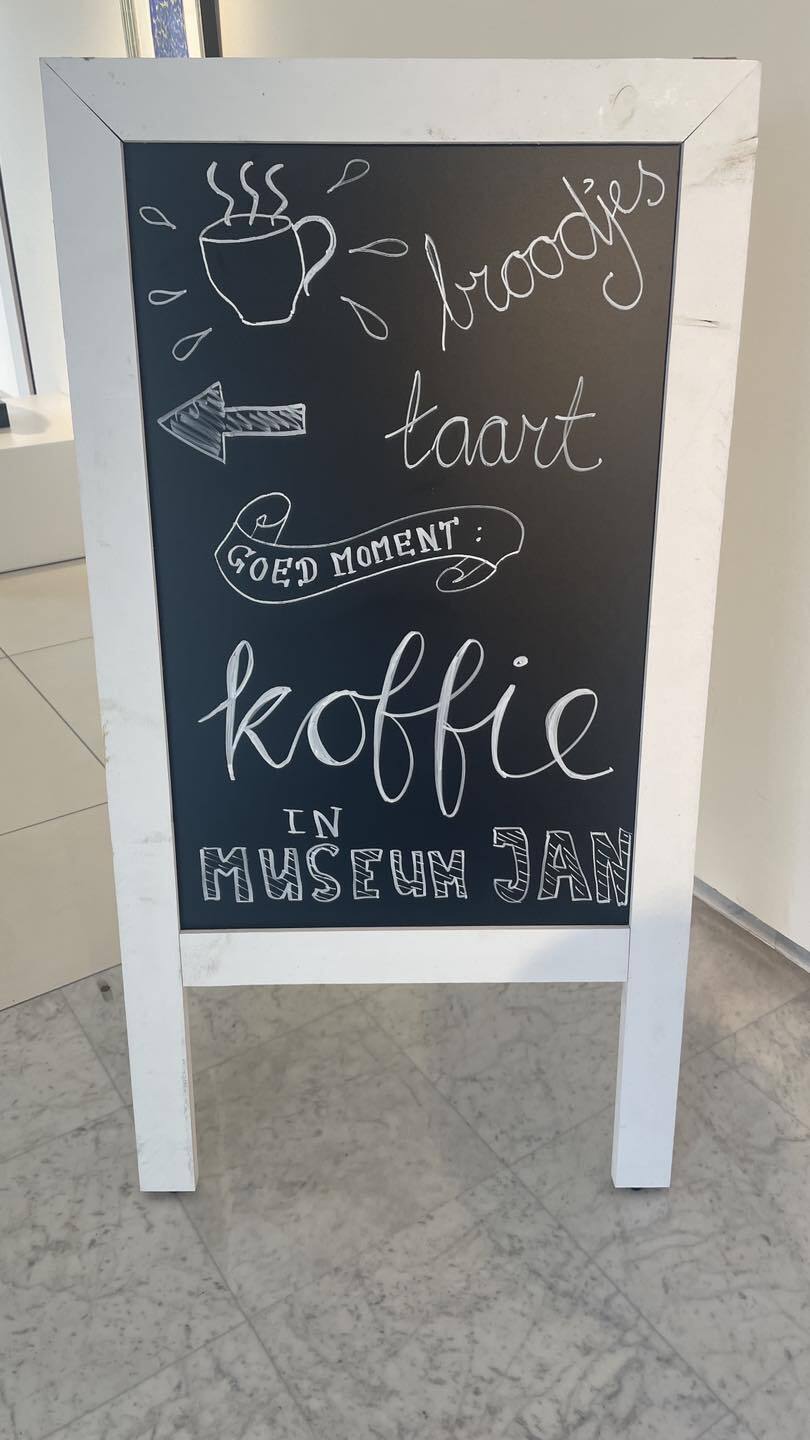 broodjes
taart
GOED MOMENT:
koffie
IN
MUSEUM JAN